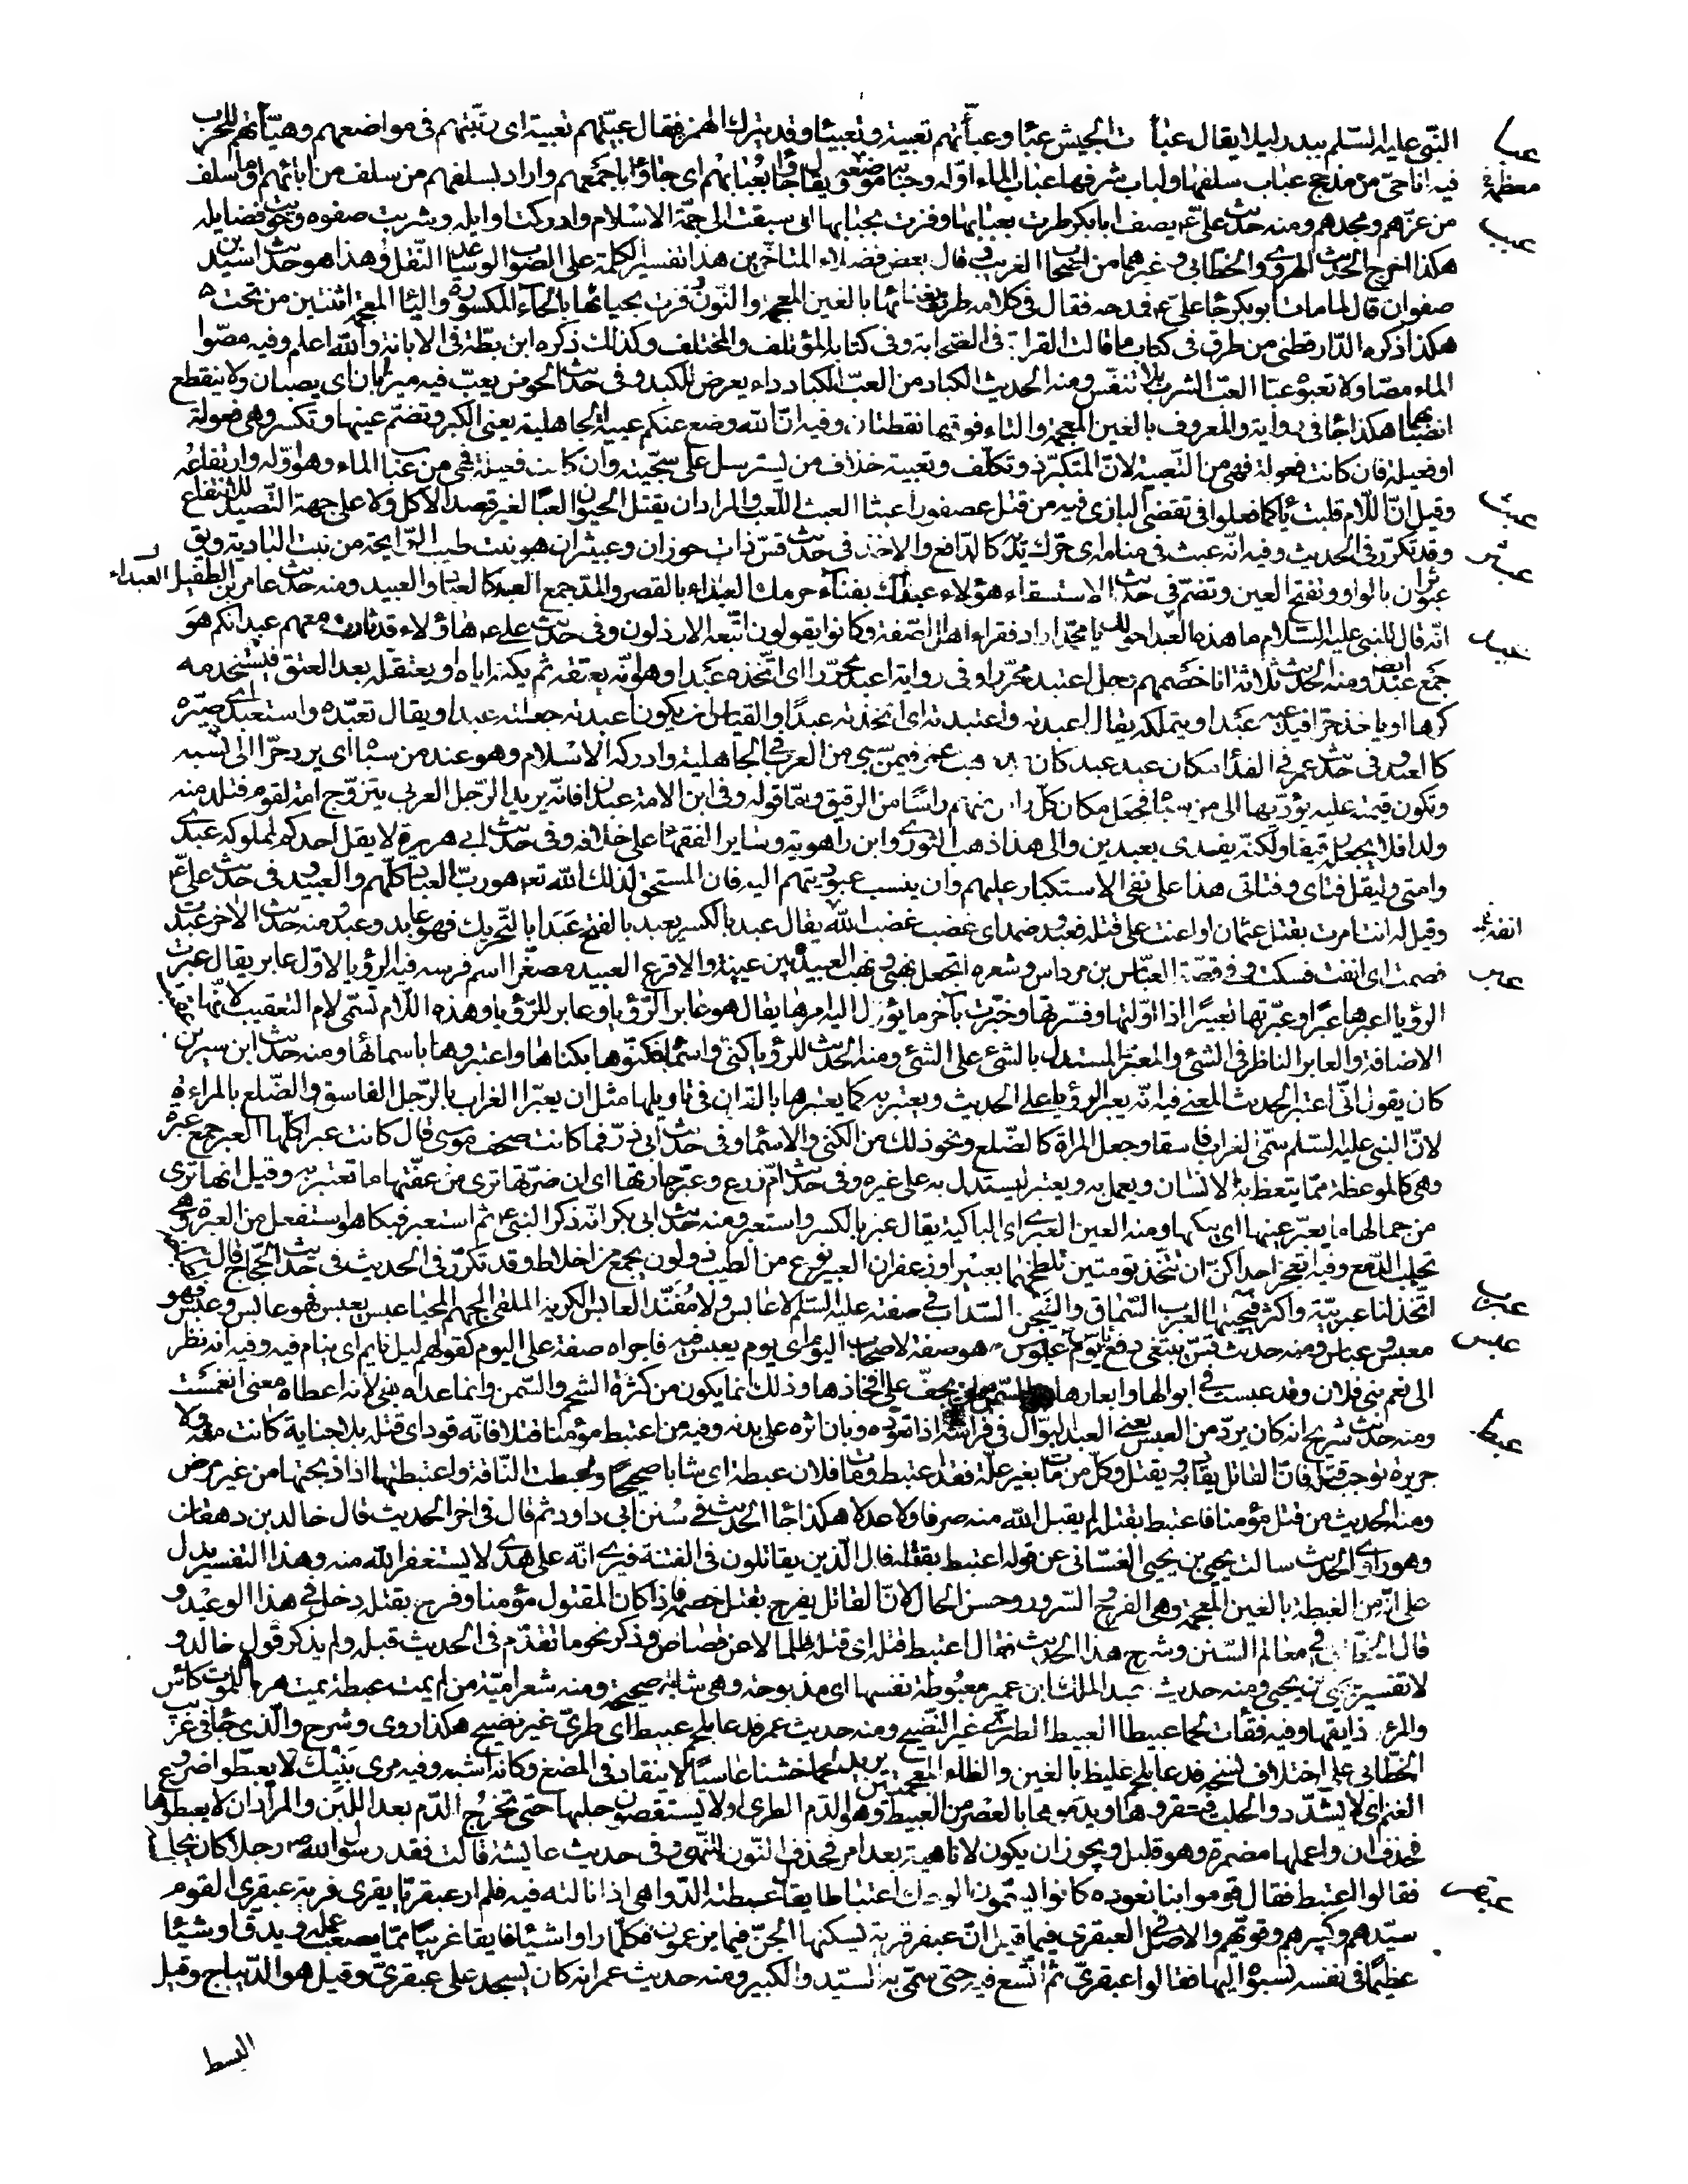 عبا
النبى عليه السلم ببدر ليلا يقال عبأت الجيش عبئا وعبأتهم تعبية وتعبيئا وقد يترك الهمز فيقال عبيتهم تعبية اى رتبتهم فى مواضعهم وهيأتهم للحرب
عبب
فيه انا حى من مذحج عباب سلفها ولباب شرفها عباب الماء اوله وحبابه معظمه ويقال جاؤا بعبابهم اى جاؤا باجمعهم واراد بسلفهم من سلف من ابائهم او ما سلف
من عزهم ومجدهم ومنه حديث على ع يصف ابا بكر طرت بعبابها وفزت بحبابها اى سبقت الى جمة الاسلام وادركت اوايله وشربت صفوه وحويت فضايله
هكذا اخرج الحديث الهروى والخطابى وغيرهما من اصحاب الغريب وقال بعض فضلاء المتاخرين هذا تفسير الكلمة على الصواب لو ساعد النقل وهذا هو حديث اسيد بن
صفوان قال لما مات ابو بكر جا على ع فمدحه فقال فى كلامه طرت بغنائها بالغين المعجمة والنون وفزت بحيائها بالحاء المكسورة واليا المعجمة اثنتين من تحت
هكذا ذكره الدار قطنى من طرق فى كتاب ما قالت القرابة فى الصحابة وفى كتابه المؤتلف والمختلف وكذلك ذكره ابن بطة فى الابانة والله اعلم وفيه مصوا
الماء مصا ولا تعبوه عبا العب الشرب بلا تنفس ومنه الحديث الكباد من العب الكباد داء يعرض للكبد وفى حديث الحوض يعب فيه ميزابان اى يصبان ولا ينقطع
انصبابهما هكذا جا فى رواية والمعروف بالغين المعجمة والتاء فوقها نقطتان وفيه ان الله وضع عنكم عبية الجاهلية يعنى الكبر وتضم عينها وتكسر وهى فعولة
او فعيلة فان كانت فعولة فهى من التعبية لان المتكبر ذو تكلف وتعبية خلاف من يسترسل على سجيته وان كانت فعيلة فهى من عباب الماء وهو اوله وارتفاعه
عبث
وقيل ان اللام قلبت ياء كما فعلوا فى تقضى البازى فيه من قتل عصفورا عبثا العبث اللعب والمراد ان يقتل الحيوان لعبا لغير قصد الاكل ولا على جهة التصيد للانتفاع
عبثر
وقد تكرر فى الحديث وفيه انه عبث فى منامه اى حرك يديه كالدافع والاخذ فى حديث قس ذات حوذان وعبيثران هو نبت طيب الرايحة من نبت البادية ويق
عبد
عبوثران بالواو وتفتح العين وتضم فى حديث الاستسقاء هؤلاء عبداك بفناء حرمك العبداء بالقصر والمد جمع العبد كالعباد والعبيد ومنه حديث عامر بن الطفيل العبداء
انه قال للنبى عليه السلام ما هذه العبدا حولك يا محمد اراد فقراء اهل الصفة وكانوا يقولون اتبعه الارذلون وفى حديث على ع هاؤلاء قد ثارت معهم عبدانكم هو
جمع عبد ايضا ومنه الحديث ثلاثة انا خصمهم رجل اعتبد محررا وفى رواية اعبد محررا اى اتخذه عبدا وهو انه يعتقه ثم يكتمه اياه او يعتقله بعد العتق فيستخدمه
كرها او ياخذ حرا فيدعيه عبدا ويتملكه يقال اعبدته واعتبدته اى اتخذته عبدا والقياس ان يكون اعبدته جعلته عبدا ويقال تعبده واستعبده اى صيره
وتكون قيمته عليه يؤديها الى من سباه فجعل مكان كل راس منهم راسا من الرقيق واما قوله وفى ابن الامة عبدان فانه يريد الرجل العربى يتزوج امة لقوم فتلد منه
ولدا فلا يجعله رقيقا ولكنه يفدى بعبدين والى هذا ذهب الثورى وابن راهوية وساير الفقها على خلافه وفى حديث ابى هريرة لا يقل احدكم لمملوكه عبدى
وامتى وليقل فتاى وفتاتى هذا على نفى الاستكبار عليهم وان ينسب عبوديتهم اليه فان المستحق لذلك الله تع هو رب العباد كلهم والعبيد وفى حديث على ع
وقيل له انت امرت بقتل عثمان او اعنت على قتله فعبد وضمد اى غضب غضب انفة يقال عبد بالكسر يعبد بالفتح عبدا بالتحريك فهو عابد وعبد ومنه حديثه الاخر عبدت
عبر
فصمت اى انفت فسكت وفى قصة العباس بن مرداس وشعره اتجعل نهبى ونهب العبيد بين عيينة والاقرع العبيد مصغرا اسم فرسه فيه الرؤيا لاول عابر يقال عبرت
الرؤيا اعبرها عبرا وعبرتها تعبيرا اذا اولتها وفسرتها وخبرت باخر ما يؤل اليه امرها يقال هو عابر الرؤيا وعابر للرؤيا وهذه اللام تسمى لام التعقيب لانها عقبت
الاضافة والعابر الناظر فى الشئ والمعتبر المستدل بالشئ على الشئ ومنه الحديث للرؤيا كنى واسما فكنوها بكناها واعتبروها باسمائها ومنه حديث ابن سيرين
كان يقول انى اعتبر الحديث المعنى فيه انه يعبر الرؤيا على الحديث ويعتبر به كما يعتبرها بالقران فى تاويلها مثل ان يعبر الغراب بالرجل الفاسق والضلع بالمراءة
لان النبى عليه السلم سمى الغراب فاسقا وجعل المراة كالضلع ونحو ذلك من الكنى والاسما وفى حديث ابى ذر فما كانت صحف موسى قال كانت عبرا كلها العبر جمع عبرة
وهى كالموعظة مما يتعظ به الانسان ويعمل به ويعتبر ليستدل به على غيره وفى حديث ام زرع وعبر جارتها اى ان ضرتها ترى من عفتها ما تعتبر به وقيل انها ترى
من جمالها ما يعبر عينها اى يبكيها ومنه العين العبرى اى الباكية يقال عبر بالكسر واستعبر ومنه حديث ابى بكر انه ذكر النبى ع ثم استعبر فبكا هو استفعل من العبرة وهى
تحلب الدمع وفيه اتعجز احداكن ان تتخذ تومتين تلطخهما بعبير او زعفران العبير نوع من الطيب ذو لون يجمع من اخلاط وقد تكرر فى الحديث فى حديث الحجاج قال لطباخه
عبرب
اتخذ لنا عبربية واكثر فيجنها العبرب السماق والفيجن السداب فى صفته عليه السلم لا عابس ولا مفند العابس الكريه الملقى الجهم المحيا عبس يعبس فهو عابس وعبس فهو
عبس
معبس وعباس ومنه حديث قس يبتغى دفع باس يوم عبوس هو صفة لاصحاب اليوم اى يوم يعبس فيه فاجراه صفة على اليوم كقولهم ليل نايم اى ينام فيه وفيه انه نظر
عبط
ومنه حديث شريح انه كان يرد من العبس يعنى العبد البوال فى فراشه اذا تعوده وبان اثره على بدنه وفيه من اعتبط مؤمنا قتلا فانه قود اى قتله بلا جناية كانت منه ولا
جريرة توجب قتله فان القاتل يقاد به ويقتل وكل من مات بغير علة فقد اعتبط ومات فلان عبطة اى شابا صحيحا وعبطت الناقة واعتبطتها اذا ذبحتها من غير مرض
ومنه الحديث من قتل مؤمنا فاعتبط بقتله لم يقبل الله منه صرفا ولا عدلا هكذا جا الحديث فى سنن ابى داود ثم قال فى اخر الحديث قال خالد بن دهقان
وهو راوى الحديث سالت يحيى بن يحيى الغسانى عن قوله اعتبط بقتله قال الذين يقاتلون فى الفتنة فيرى انه على هدى لا يستغفر الله منه وهذا التفسير يدل
على انه من الغبطة بالغين المعجمة وهى الفرح والسرور وحسن الحال لان القاتل يفرح بقتل خصمه فاذا كان المقتول مؤمنا وفرح بقتله دخل فى هذا الوعيد و
قال الخطابى فى معالم السنن وشرح هذا الحديث فقال اعتبط قتله اى قتله ظلما لا عن قصاص وذكر نحو ما تقدم فى الحديث قبله ولم يذكر قول خالد و
لا تفسير يحيى بن يحيى ومنه حديث عبد الملك ابن عمير معبوطة نفسها اى مذبوحة وهى شابة صحيحة ومنه شعر امية من لم يمت عبطة يمت هرما للموت كاس
والمرء ذايقها وفيه فقأت لحما عبيطا العبيط الطرى غير النضيج ومنه حديث عمر فدعا بلحم عبيط اى طرى غير نضيج هكذا روى وشرح والذى جا فى غريب
الخطابى على اختلاف نسخه فدعا بلحم غليظ بالغين والظاء المعجمتين يريد لحما خشنا عاسيا لا ينقاد فى المضغ وكانه اشبه وفيه مرى بنيك لا يعبطوا ضروع
الغنم اى لا يشددوا الحلب فيعقروها ويدموها بالعصر من العبيط وهو الدم الطرى او لا يستقصون حلبها حتى يخرج الدم بعد اللبن والمراد ان لا يعبطوها
فحذف ان واعملها مضمرة وهو قليل ويجوز ان يكون لا ناهية بعد امر فحذف النون للنهى وفى حديث عايشة قالت فقد رسول الله ص رجلا كان يجالسه
عبقر
سيدهم وكبيرهم وقويهم والاصل فى العبقرى فيما قيل ان عبقر قرية يسكنها الجن فيما يزعمون فكلما راوا شيئا فايقا غريبا مما يصعب عمله ويدق او شيئا
عظيما فى نفسه نسبوه اليها فقالوا عبقرى ثم اتسع فيه حتى سمى به السيد والكبير ومنه حديث عمر انه كان يسجد على عبقرى وقيل هو الديباج وقيل
البسط